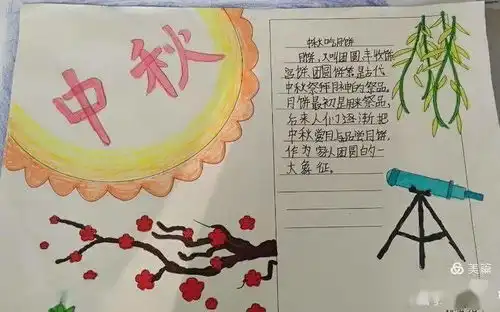 中秋
中秋吃月饼
月饼，又叫团圆丰收饼
宫饼团圆饼等是古代
中秋祭拜月神的祭品，
月饼最初是用来祭品，
后来人们逐渐把
中秋赏月与品尝月饼，
作为家人团圆的一
大象征。
美篇